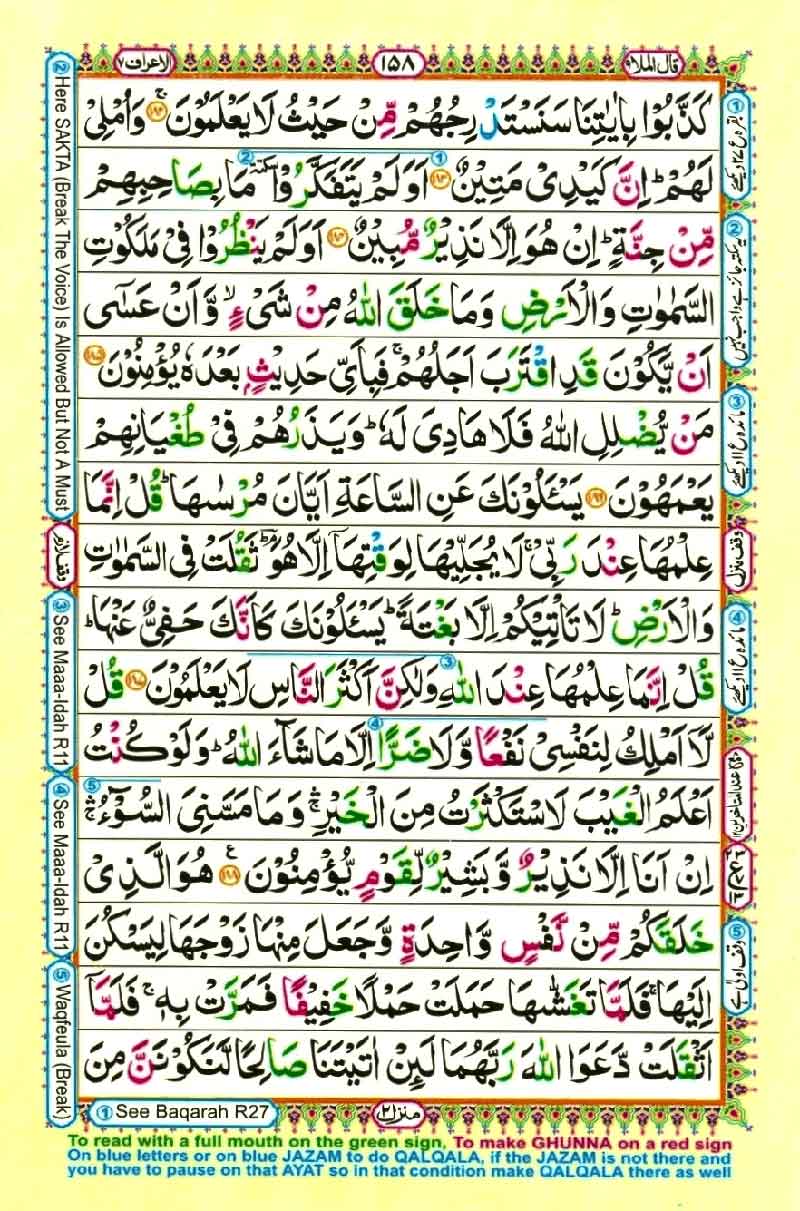 قال الملا۹
۱۵۸
الاعراف۷
كَذَّبُوْا بِاٰيٰتِنَا سَنَسْتَدْرِجُهُمْ مِّنْ حَيْثُ لَا يَعْلَمُوْنَ ۚ ۱۸۲ وَاُمْلِيْ
لَهُمْ ؕ اِنَّ كَيْدِيْ مَتِيْنٌ ۱۸۳ اَوَلَمْ يَتَفَكَّرُوْا سكتة مَا بِصَاحِبِهِمْ
مِّنْ جِنَّةٍ ؕ اِنْ هُوَ اِلَّا نَذِيْرٌ مُّبِيْنٌ ۱۸۴ اَوَلَمْ يَنْظُرُوْا فِيْ مَلَكُوْتِ
السَّمٰوٰتِ وَالْاَرْضِ وَمَا خَلَقَ اللّٰهُ مِنْ شَيْءٍ ۙ وَّاَنْ عَسٰۤى
اَنْ يَّكُوْنَ قَدِ اقْتَرَبَ اَجَلُهُمْ ۚ فَبِاَيِّ حَدِيْثٍۭ بَعْدَهٗ يُؤْمِنُوْنَ ۱۸۵
مَنْ يُّضْلِلِ اللّٰهُ فَلَا هَادِيَ لَهٗ ؕ وَيَذَرُهُمْ فِيْ طُغْيَانِهِمْ
يَعْمَهُوْنَ ۱۸۶ يَسْـَٔلُوْنَكَ عَنِ السَّاعَةِ اَيَّانَ مُرْسٰىهَا ؕ قُلْ اِنَّمَا
عِلْمُهَا عِنْدَ رَبِّيْ ۚ لَا يُجَلِّيْهَا لِوَقْتِهَاۤ اِلَّا هُوَ ؔۘ ثَقُلَتْ فِي السَّمٰوٰتِ
وَالْاَرْضِ ؕ لَا تَاْتِيْكُمْ اِلَّا بَغْتَةً ؕ يَسْـَٔلُوْنَكَ كَاَنَّكَ حَفِيٌّ عَنْهَا ؕ
قُلْ اِنَّمَا عِلْمُهَا عِنْدَ اللّٰهِ وَلٰكِنَّ اَكْثَرَ النَّاسِ لَا يَعْلَمُوْنَ ۱۸۷ قُلْ
لَّاۤ اَمْلِكُ لِنَفْسِيْ نَفْعًا وَّلَا ضَرًّا اِلَّا مَا شَآءَ اللّٰهُ ؕ وَلَوْ كُنْتُ
اَعْلَمُ الْغَيْبَ لَاسْتَكْثَرْتُ مِنَ الْخَيْرِ ۛۚ وَمَا مَسَّنِيَ السُّوْٓءُ ۛۚ
اِنْ اَنَا اِلَّا نَذِيْرٌ وَّبَشِيْرٌ لِّقَوْمٍ يُّؤْمِنُوْنَ ۱۸۸ ع هُوَ الَّذِيْ
خَلَقَكُمْ مِّنْ نَّفْسٍ وَّاحِدَةٍ وَّجَعَلَ مِنْهَا زَوْجَهَا لِيَسْكُنَ
اِلَيْهَا ۚ فَلَمَّا تَغَشّٰىهَا حَمَلَتْ حَمْلًا خَفِيْفًا فَمَرَّتْ بِهٖ ۚ فَلَمَّاۤ
اَثْقَلَتْ دَّعَوَا اللّٰهَ رَبَّهُمَا لَىِٕنْ اٰتَيْتَنَا صَالِحًا لَّنَكُوْنَنَّ مِنَ
② یہ سکتہ جائز ہے واجب نہیں
③ مائدہ ع ۱۱ دیکھئے
وقف منزل
④ مائدہ ع ۱۱ دیکھئے
⑤ وقف اولیٰ ہے
② Here SAKTA (Break The Voice) Is Allowed But Not A Must
وقف لازم
③ See Maaa-Idah R11
④ See Maaa-Idah R11
⑤ Waqfeula (Break)
① See Baqarah R27
منزل۲
To read with a full mouth on the green sign, To make GHUNNA on a red sign
On blue letters or on blue JAZAM to do QALQALA, if the JAZAM is not there and
you have to pause on that AYAT so in that condition make QALQALA there as well